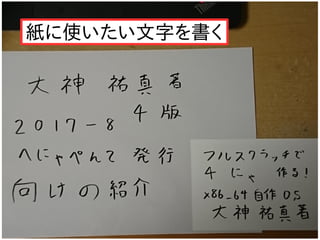 紙に使いたい文字を書く
大神 祐真 著
2017-8 4版
へにゃぺんて 発行
向けの紹介
フルスクラッチで
4 にゃ 作る!
x86_64 自作OS
大神 祐真 著